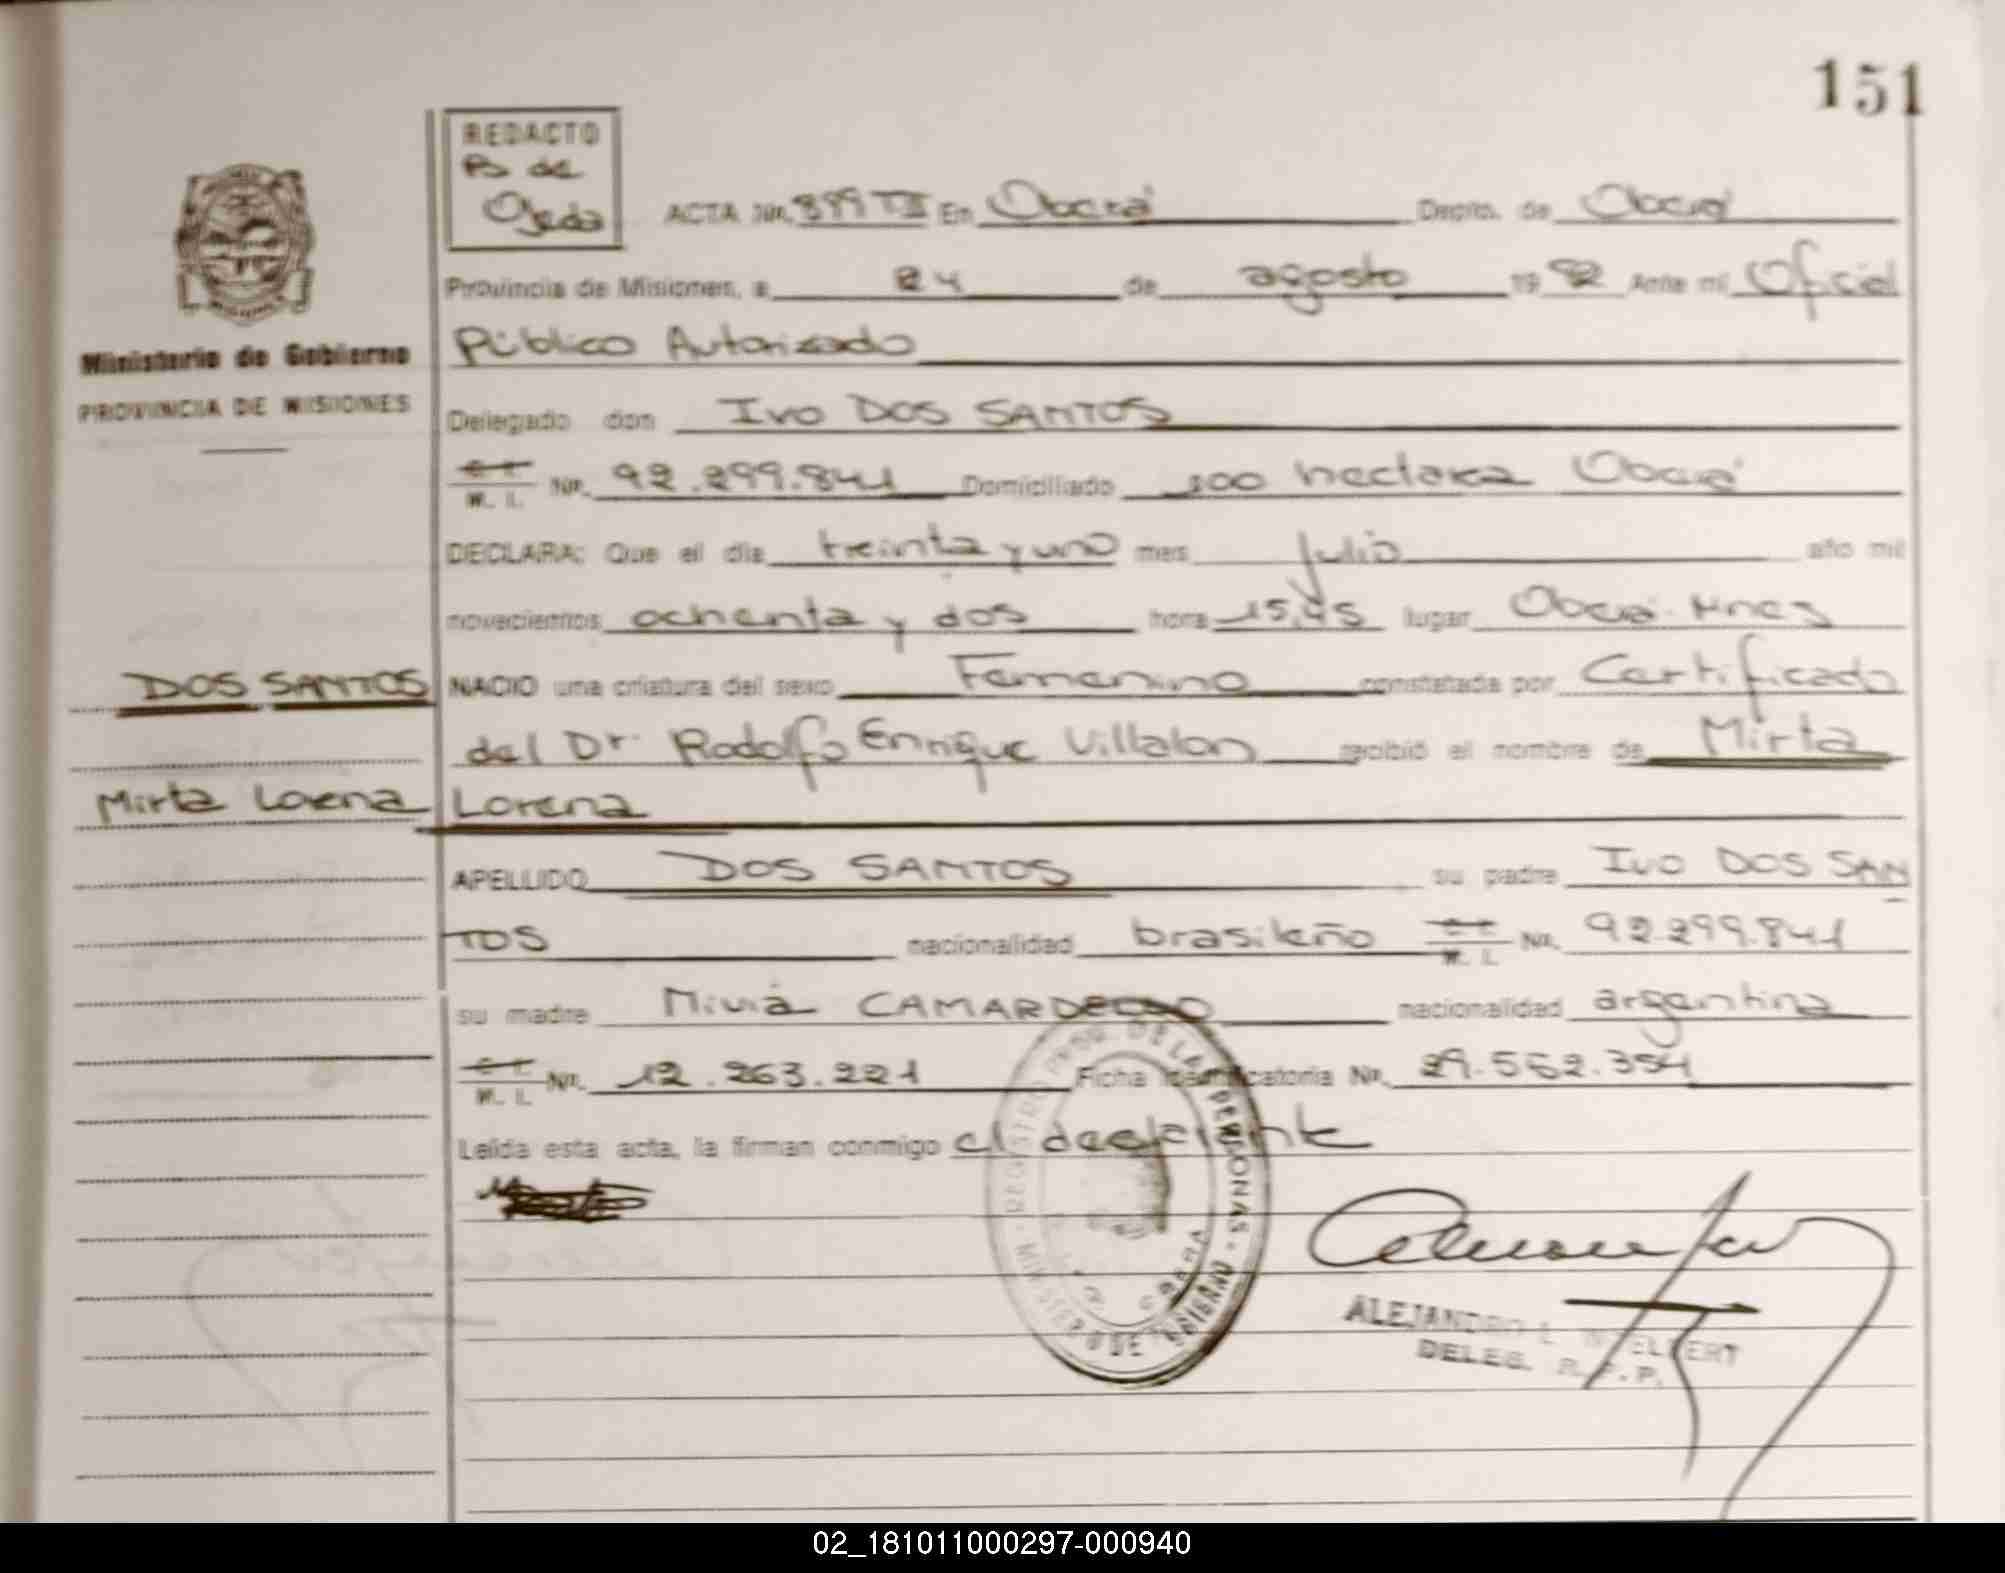 151
REDACTO
Ps de
Ojeda
ACTA Núm. 899 TII En Oberá Depto. de Oberá
Provincia de Misiones, a 24 de agosto 1982 Ante mi Oficial
Público Autorizado
Ministerio de Gobierno
PROVINCIA DE MISIONES
Delegado don Ivo DOS SANTOS
C. I.
M. I. Nº. 92.299.841 Domiciliado 100 hectarea Oberá
DECLARA: Que el día treinta y uno mes julio año mil
novecientos ochenta y dos hora 15,45 lugar Oberá. Mnes
DOS SANTOS NACIO una criatura del sexo Femenino constatada por Certificado
del Dr. Rodolfo Enrique Villalon recibió el nombre de Mirta
Mirta Lorena Lorena
APELLIDO DOS SANTOS su padre Ivo DOS SAN
TOS nacionalidad brasileño C. I.
M. I. Nº. 92.299.841
su madre CAMARDELLO nacionalidad argentina
C. I.
M. I. Nº. 12.263.221 Ficha identificatoria Nº. 29.562.354
Leída esta acta, la firman conmigo el declarante
MINISTERIO DE GOBIERNO - REGISTRO PROV. DE LAS PERSONAS - OBERA
ALEJANDRO E.
DELEG. R. P. P.
02_181011000297-000940